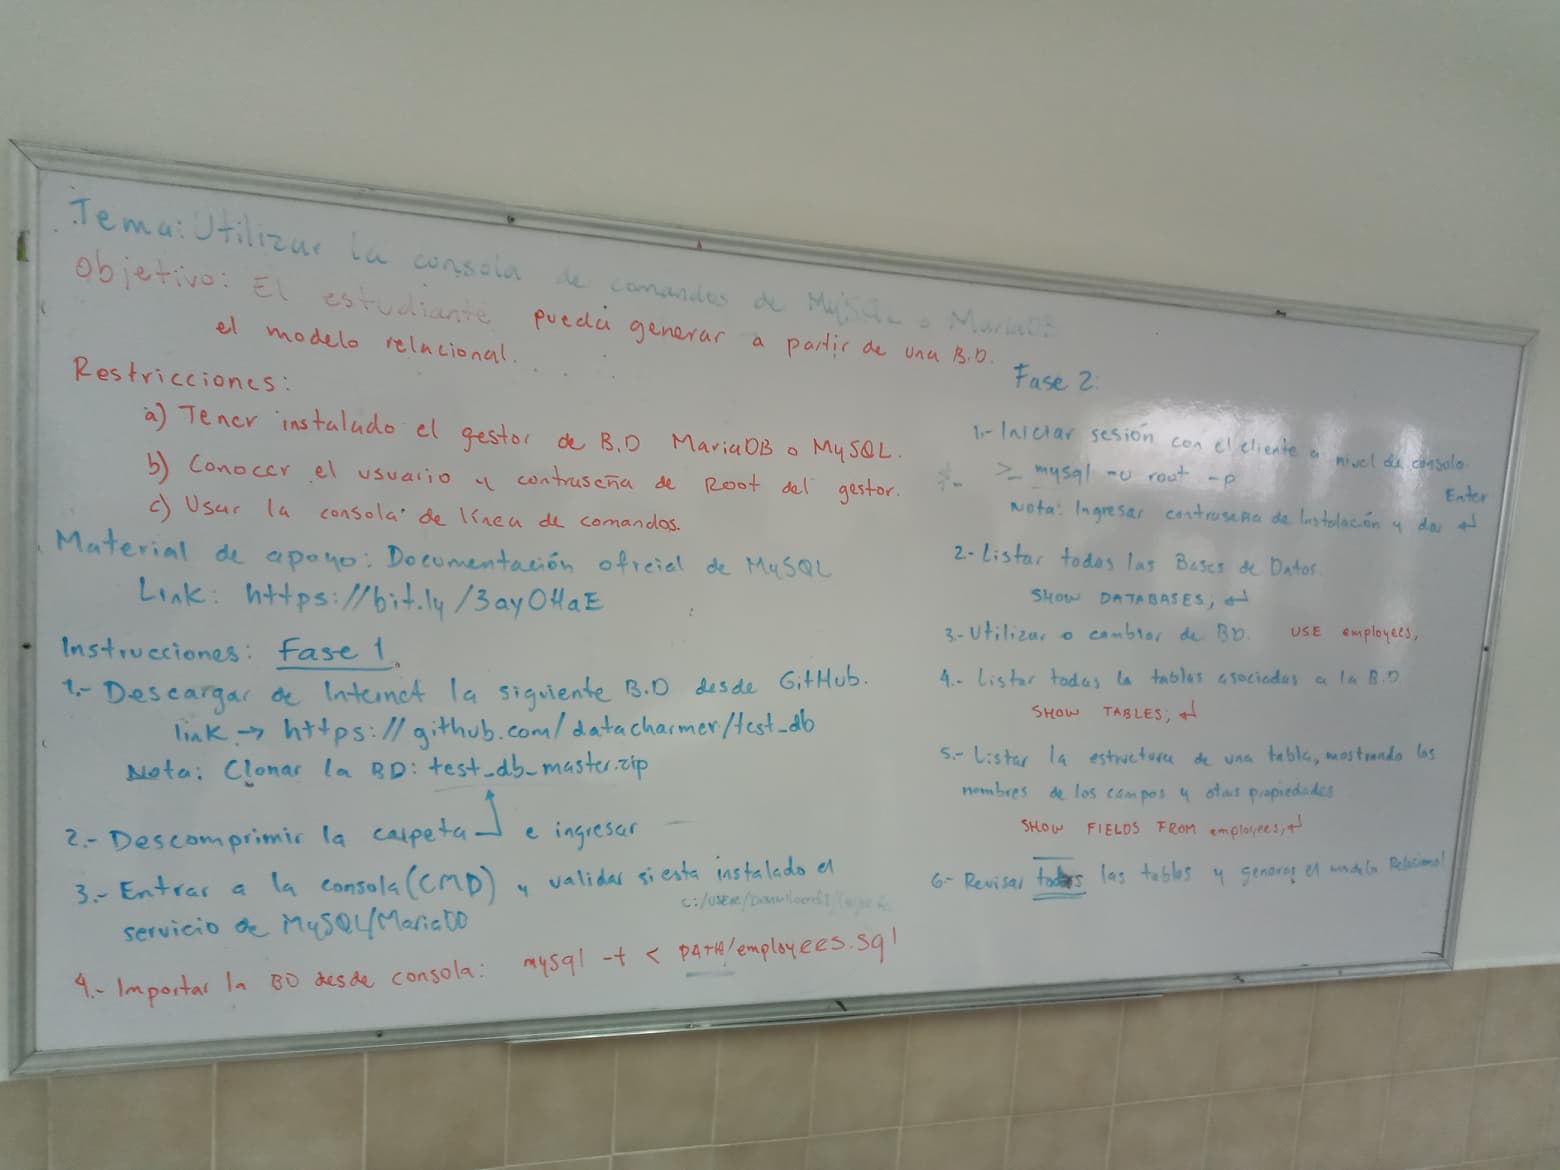 Tema: Utilizar la consola de comandos de MySQL o MariaDB
Objetivo: El estudiante pueda generar a partir de una B.D.
el modelo relacional.
Restricciones:
a) Tener instalado el gestor de B.D MariaDB o MySQL.
b) Conocer el usuario y contraseña de Root del gestor.
c) Usar la consola de línea de comandos.
Material de apoyo: Documentación oficial de MySQL
Link: https://bit.ly/3ayOHaE
Instrucciones: Fase 1
1.- Descargar de Internet la siguiente B.D desde GitHub.
link → https://github.com/datacharmer/test_db
Nota: Clonar la BD: test_db_master.zip
2.- Descomprimir la carpeta e ingresar
3.- Entrar a la consola (CMD) y validar si esta instalado el
servicio de MySQL/MariaDB
C:/USER/
4.- Importar la BD desde consola: mysql -t < PATH/employees.sql
Fase 2:
1.- Iniciar sesión con el cliente a nivel de consola.
>_ mysql -u root -p
Enter
Nota: Ingresar contraseña de Instalación y dar ↵
2.- Listar todas las Bases de Datos.
SHOW DATABASES; ↵
3.- Utilizar o cambiar de BD. USE employees;
4.- Listar todas la tablas asociadas a la B.D
SHOW TABLES; ↵
5.- Listar la estructura de una tabla, mostrando los
nombres de los campos y otras propiedades
SHOW FIELDS FROM employees; ↵
6.- Revisar todas las tablas y generar el modelo Relacional